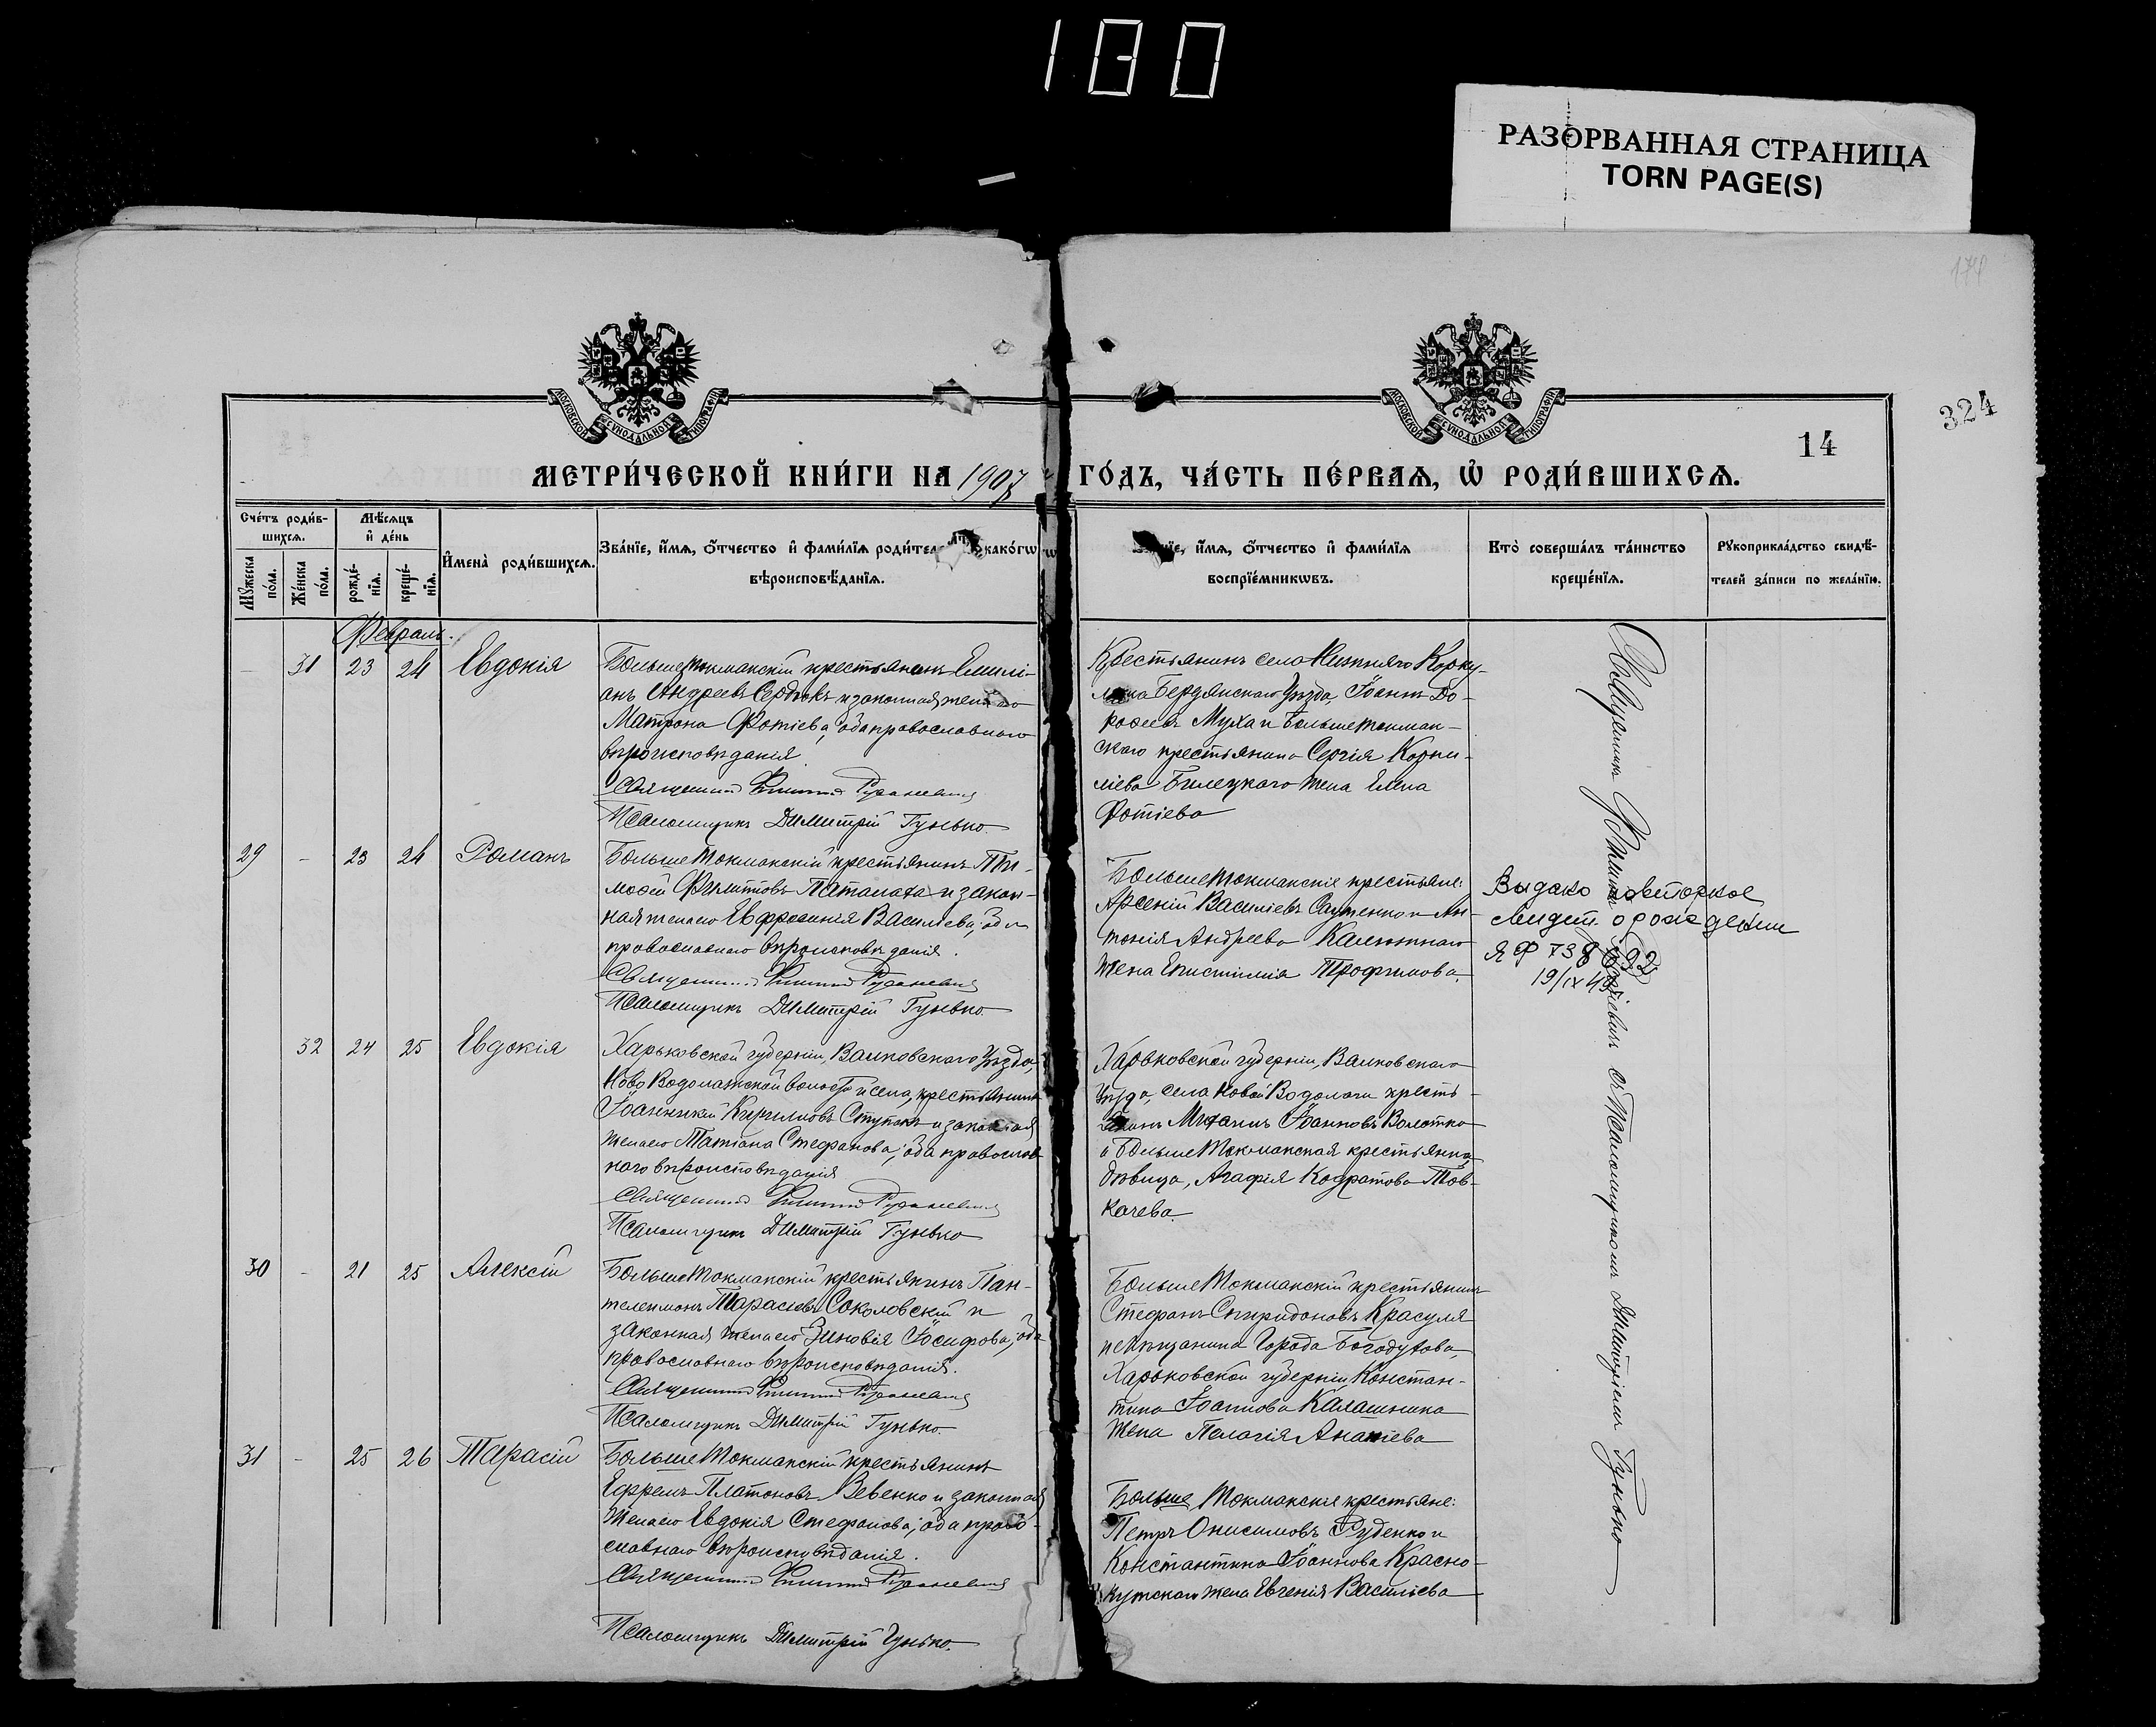 180
РАЗОРВАННАЯ СТРАНИЦА
TORN PAGE(S)
174
324
14
МОСКОВСКОЙ СѴНОДАЛЬНОЙ ТИПОГРАФІИ
МОСКОВСКОЙ СѴНОДАЛЬНОЙ ТИПОГРАФІИ
МЕТРИ́ЧЕСКОЙ КНИ́ГИ НА 1907 ГО́ДЪ, ЧА́СТЬ ПЕ́РВАѦ, Ѡ҆ РОДИ́ВШИХСѦ.
Сче́тъ роди́в-
шихсѧ.
Мꙋ́жеска по́ла.
Же́нска по́ла.
Мѣ́сѧцъ
и҆ де́нь
рожде́-
нїѧ.
креще́-
нїѧ.
И҆мена̀ роди́вшихсѧ.
Зва́нїе, и҆́мѧ, ѻ҆́тчество и҆ фами́лїѧ роди́тел како́гѡ
вѣроисповѣ́данїѧ.
и҆́мѧ, ѻ҆́тчество и҆ фами́лїѧ
воспрїе́мникѡвъ.
Кто̀ соверша́лъ та́инство
креще́нїѧ.
Рꙋкоприкла́дство свидѣ́-
телей за́писи по жела́нїю.
Февраль.
31 23 24 Евдокія
Больше-токмакскій крестьянинъ Емилі-
анъ Андреевъ Сердюкъ и законная жена его
Матрона Фотіева, оба православнаго
вѣроисповѣданія.
Священникъ
Псаломщикъ Димитрій Гунько.
Крестьянинъ села Нижняго Корку-
лака Бердянскаго Уѣзда, Іоаннъ До-
роѳеевъ Муха и Большетокмак-
скаго крестьянина Сергія Корни-
ліева Билецкаго жена Елена
Фотіева
29 - 23 24 Романъ
Больше Токмакскій крестьянинъ Ти-
моѳей Филипповъ и закон-
ная жена его Евфросинія Васильева, оба
православнаго вѣроисповѣданія.
Священникъ
Псаломщикъ Димитрій Гунько.
Больше Токмакскіе крестьяне:
Арсеній Василіевъ и Ан-
тонія Андреева Калюжнаго
жена Епистимія Трофимова.
Выдано повторное
свидет. о рождении
ЯФ 738
19/IX 43
32 24 25 Евдокія
Харьковской губерніи, Валковскаго Уѣзда,
Ново Водолажской волости и села, крестьянинъ
Іоанникій Кирилловъ Ступакъ и законная
жена его Татіана Стефанова, оба православ-
наго вѣроисповѣданія
Священникъ
Псаломщикъ Димитрій Гунько
Харьковской губерніи, Валковскаго
Уѣзда, села Новой Водолаги кресть-
янинъ Михаилъ Іоанновъ
и Больше Токмакская крестьянка,
дѣвица, Агафія Кодратова Тов-
качева.
30 - 21 25 Алексій
Больше Токмакскій крестьянинъ Пан-
телеимонъ Тарасіевъ Соколовскій и
законная жена его Зиновія Іосифова, оба
православнаго вѣроисповѣданія.
Священникъ
Псаломщикъ Димитрій Гунько.
Больше Токмакскій крестьянинъ
Стефанъ Спиридоновъ Красуля
и Мѣщанина Города Богодухова,
Харьковской губерніи, Констан-
тина Іоаннова Калашника
жена Пелагія Ананіева
31 - 25 26 Тарасій
Больше Токмакскій крестьянинъ
Ефремъ Платоновъ Вевенко и законная
жена его Евдокія Стефанова, оба право-
славнаго вѣроисповѣданія.
Священникъ
Псаломщикъ Димитрій Гунько.
Больше Токмакскіе крестьяне:
Петръ Онисимовъ Руденко и
Константина Іоаннова Красно-
кутскаго жена Евгенія Васильева
Священникъ съ Псаломщикомъ Димитріемъ Гунько